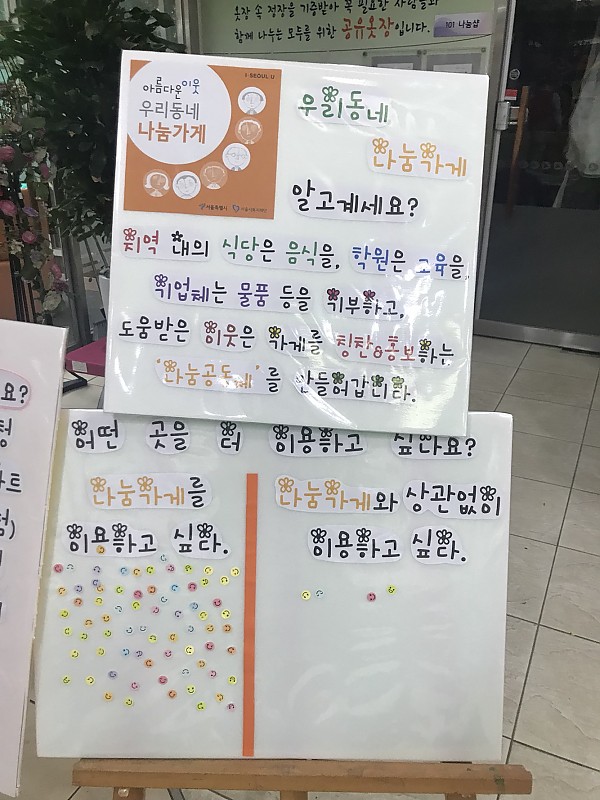 옷장 속 정장을 기증받아 꼭 필요한 사람들과
함께 나누는 모두를 위한 공유옷장입니다.
101 나눔샵
I·SEOUL·U
아름다운이웃
우리동네
나눔가게
서울특별시
우리동네
나눔가게
알고계세요?
지역 내의 식당은 음식을, 학원은 교육을,
기업체는 물품 등을 기부하고,
도움받은 이웃은 가게를 칭찬&홍보하는
'나눔공동체'를 만들어갑니다.
어떤 곳을 더 이용하고 싶나요?
나눔가게를
이용하고 싶다.
나눔가게와 상관없이
이용하고 싶다.
요?